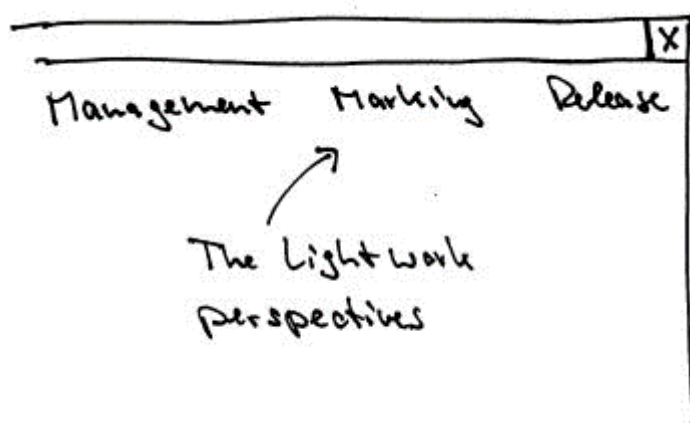 X
Management Marking Release
The Lightwork
perspectives